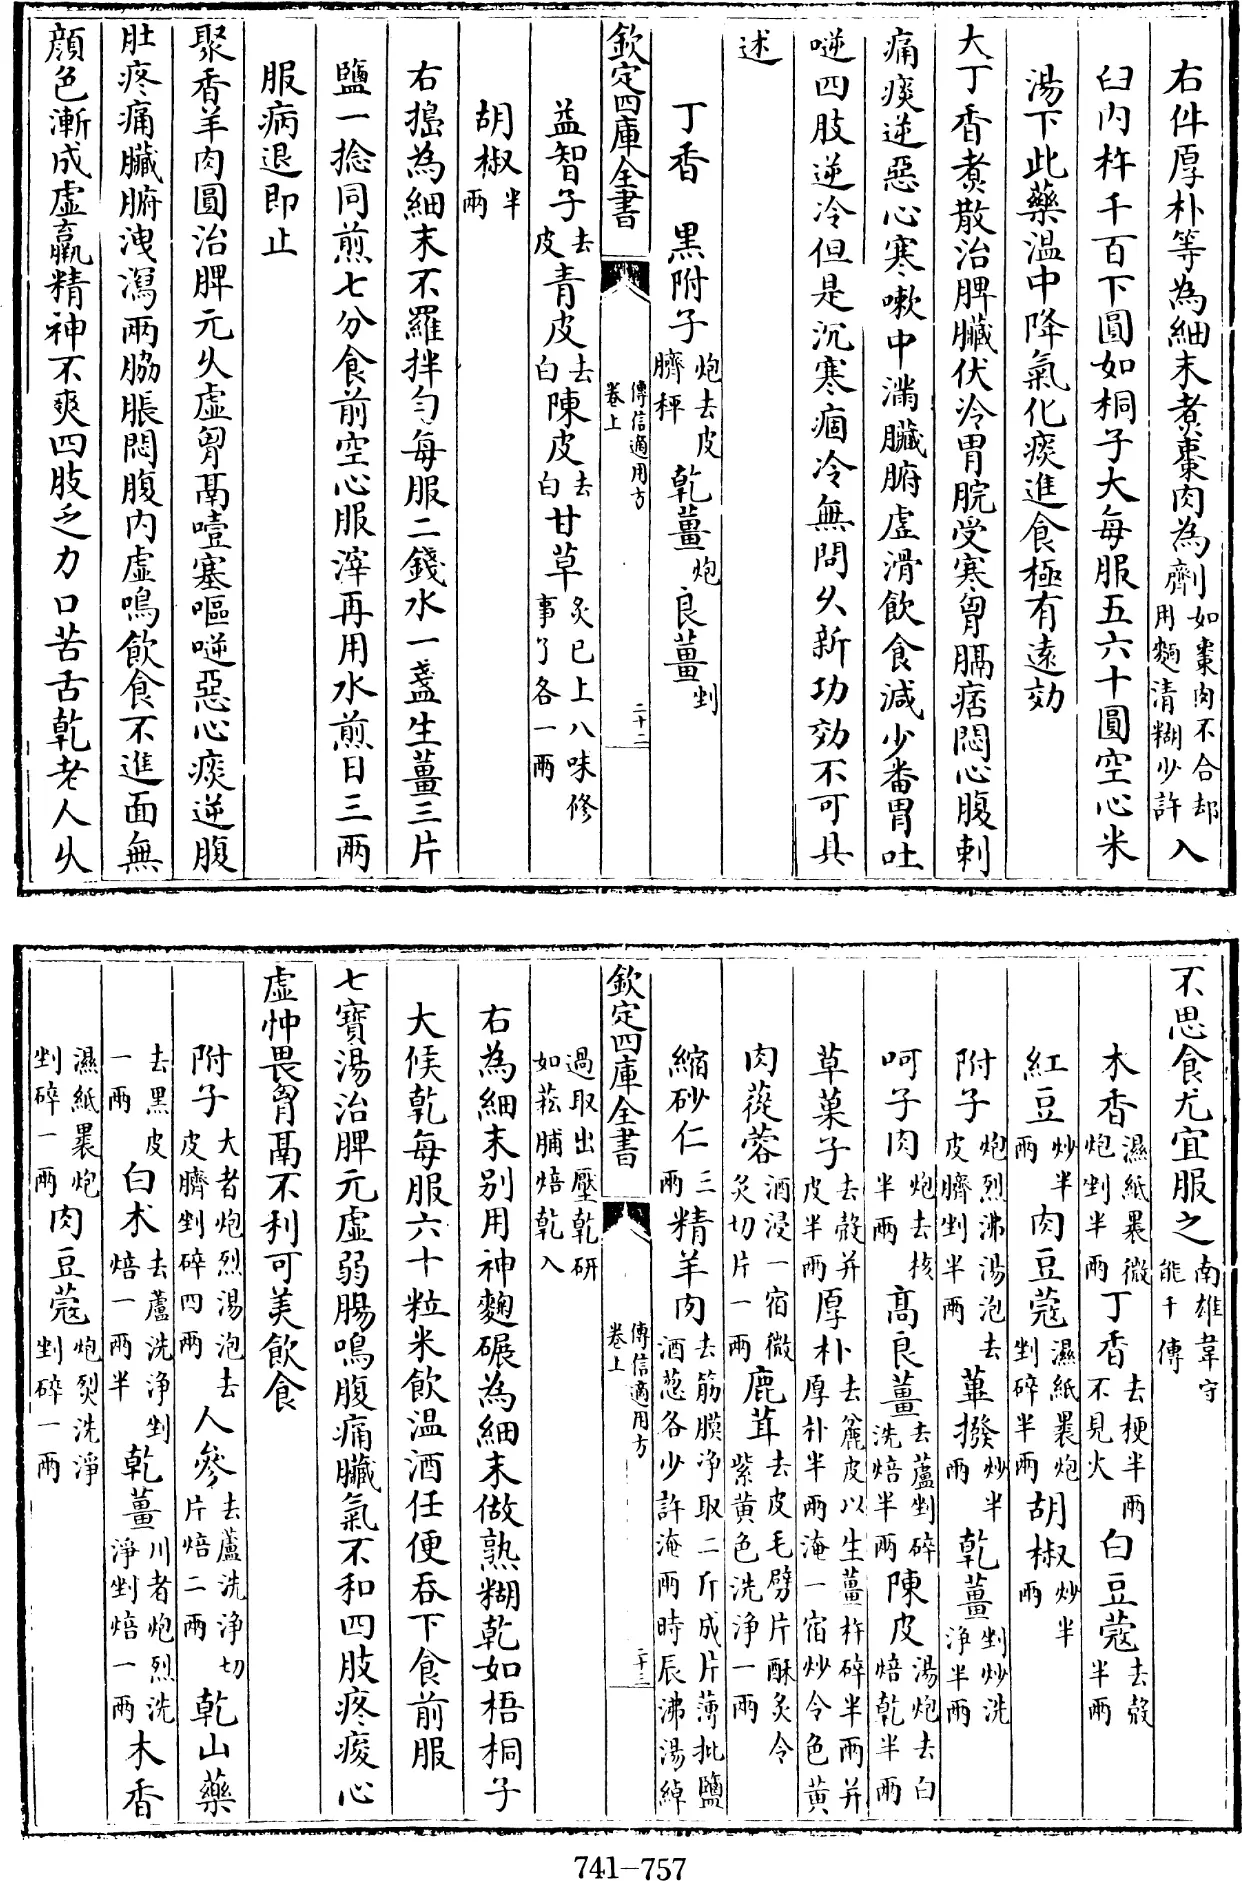 右件厚朴等為細末煮棗肉為劑如棗肉不合却用麵清糊少許入
臼内杵千百下圓如桐子大每服五六十圓空心米
湯下此藥温中降氣化痰進食極有遠効
大丁香煮散治脾臟伏冷胃脘受寒胷膈痞悶心腹刺
痛痰逆惡心寒嗽中滿臟腑虚滑飲食減少畨胃吐
噦四肢逆冷但是沉寒痼冷無問乆新功効不可具
述
丁香 黑附子炮去皮臍秤乾薑炮良薑剉
欽定四庫全書
傳信適用方
卷上
二十二
益智子去皮青皮去白陳皮去白甘草炙已上八味修事了各一兩
胡椒半兩
右搗為細末不羅拌匀每服二錢水一盞生薑三片
鹽一捻同煎七分食前空心服滓再用水煎日三兩
服病退即止
聚香羊肉圓治脾元乆虚胷鬲噎塞嘔噦惡心痰逆腹
肚疼痛臟腑洩瀉兩脇脹悶腹内虚鳴飲食不進面無
顔色漸成虚羸精神不爽四肢乏力口苦舌乾老人乆
不思食尤宜服之南雄韋守能千傳
木香濕紙裹微炮剉半兩丁香去梗半兩不見火白豆蔻去殻半兩
紅豆炒半兩肉豆蔻濕紙裹炮剉碎半兩胡椒炒半兩
附子炮烈沸湯泡去皮臍剉半兩蓽撥炒半兩乾薑剉炒洗淨半兩
呵子肉炮去核半兩髙良薑去蘆剉碎洗焙半兩陳皮湯炮去白焙乾半兩
草菓子去殻并皮半兩厚朴去麄皮以生薑杵碎半兩并厚朴半兩淹一宿炒令色黄
肉蓯蓉酒浸一宿微炙切片一兩鹿茸去皮毛劈片酥炙令紫黄色洗淨一兩
縮砂仁三兩精羊肉去筋膜净取二斤成片薄批鹽酒葱各少許淹兩時辰沸湯綽
欽定四庫全書
傳信適用方
卷上
二十三
過取出壓乾研如菘脯焙乾入
右為細末别用神麯碾為細末做熟糊乾如梧桐子
大候乾每服六十粒米飲温酒任便吞下食前服
七寶湯治脾元虚弱腸鳴腹痛臟氣不和四肢疼痠心
虚忡畏胷鬲不利可美飲食
附子大者炮烈湯泡去皮臍剉碎四兩人參去蘆洗净切片焙二兩乾山藥
去黑皮一兩白术去蘆洗淨剉焙一兩半乾薑川者炮烈洗淨剉焙一兩木香
濕紙裹炮剉碎一兩肉豆蔻炮裂洗淨剉碎一兩
741-757